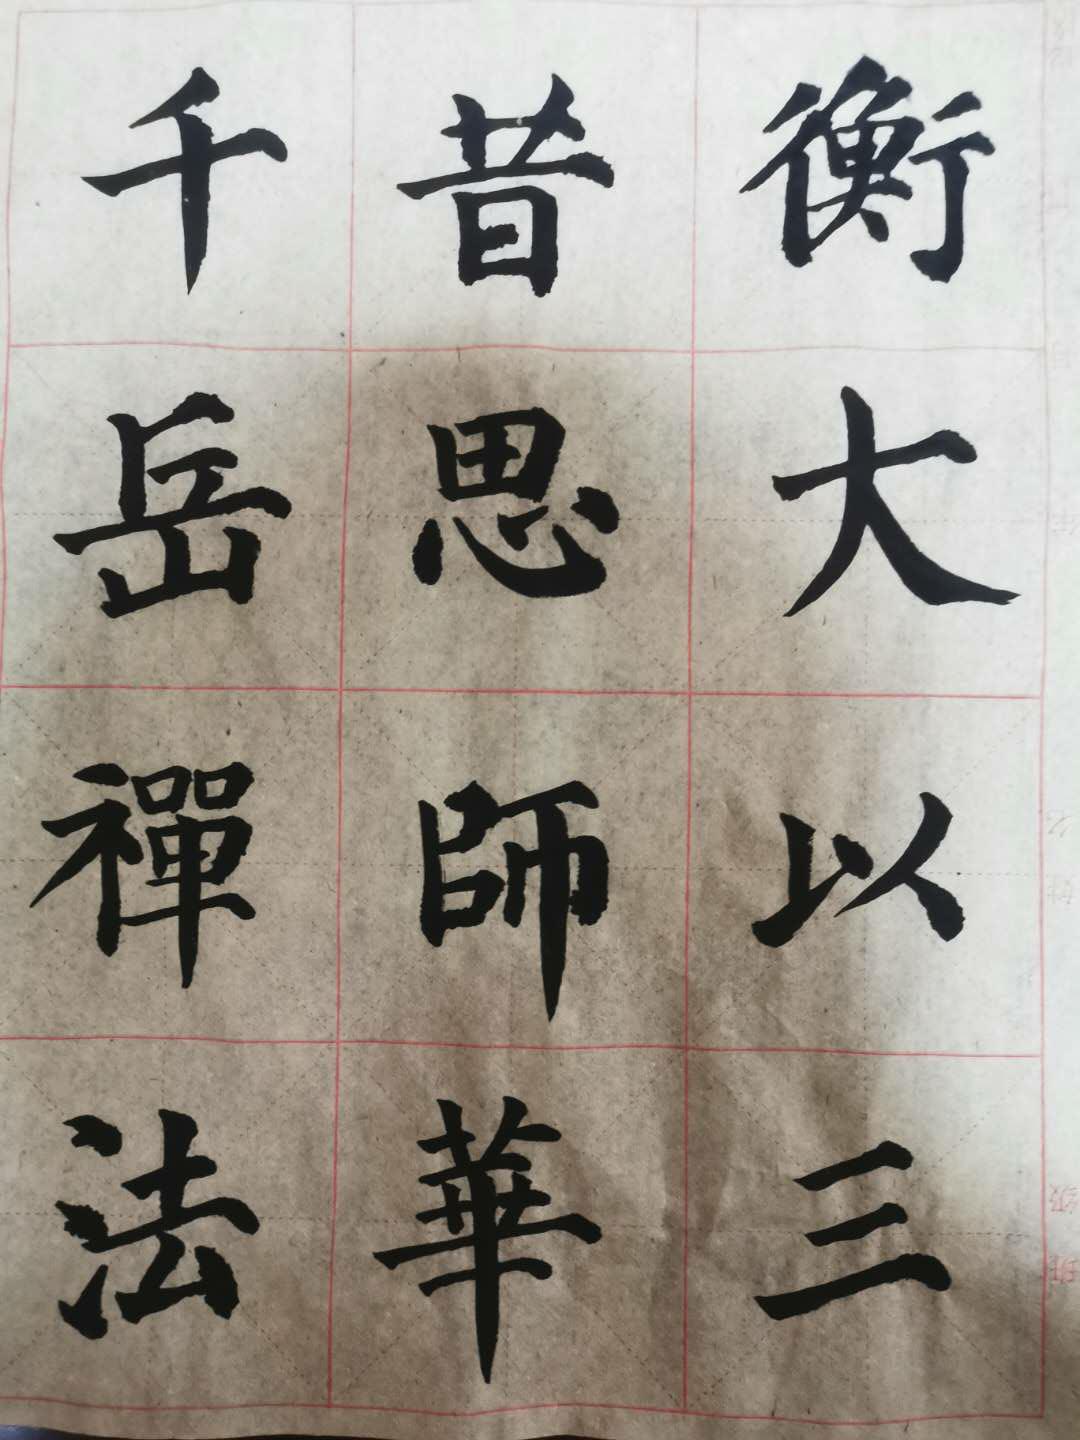 千昔衡
岳思大
禪師以
法華三